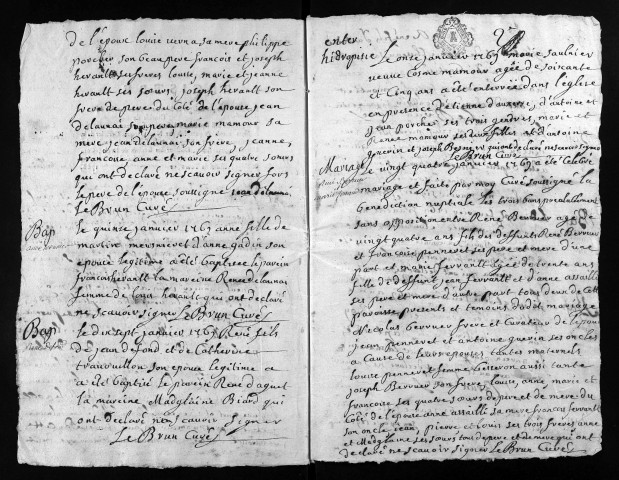 de l'epoux louise verna sa mere philippe
porcher son beau pere francois et joseph
herault ses freres louise, marie et jeanne
herault ses sœurs joseph herault son
frere de pere du coté de l'epouse jean
delaunai son pere marie mamour sa
mere jean delaunai son frere, jeanne,
francoise anne et marie ses quatre sœurs
qui ont declaré ne scavoir signer fors
le pere de l'epouse soussigné jean delaunai
Le Brun Curé
Bap
le quinze janvier 1769 anne fille de
martin mesnier et d'anne gadin son
epouse legitime a eté baptisee le parein
francois herault la mareine Renee delaunai
femme de louis herault qui ont declaré
ne scavoir signer Le Brun Curé
Bap
le dix sept janvier 1769 René fils
de jean defond et de Catherine
son epouse legitime a
a eté baptisé le parein René daguet
la mareine Madglaine Biard qui
ont declaré ne scavoir signer
Le Brun Curé
enter
hidropisie
le onze janvier 1769 marie saulnier
veuve Cosme mamour agée de soixante
et Cinq ans a eté enterrée dans l'eglise
en presence d'etienne d'antoine et
jean porcher ses trois gendres, marie et
Renée mamour ses deux filles et d'antoine
et joseph Besnier qui ont declaré ne scavoir signer
Le Brun Curé
Mariage
le vingt quatre janvier 1769 a eté Celebré
mariage et faite par moy Curé soussigné la
benediction nuptiale les trois bans prealablement
sans opposition entre René Bervuer agé de
vingt quatre ans fils des deffunts René Bervuer
et francoise pennevet ses pere et mere d'une
part et marie ferrault agée de trente ans
fille de deffunt jean ferrault et d'anne assailli
ses pere et mere d'autre part tous deux de Cette
paroisse presents et temoins du dit mariage
Nicolas Bervuer frere et Curateur de l'epoux
jean pennevet et antoine guerin ses oncles
a Cause de leurs epouses tantes maternels
louise pennevet femme aussi tante
joseph Bervuer son frere, louise, anne marie et
francoise ses quatre sœurs de pere et de mere du
Coté de l'epouse anne assailli sa mere francois ferrault
son oncle jean, pierre et louis ses trois freres anne
et Madglaine ses sœurs tous de pere et de mere qui ont
declaré ne scavoir signer Le Brun Curé